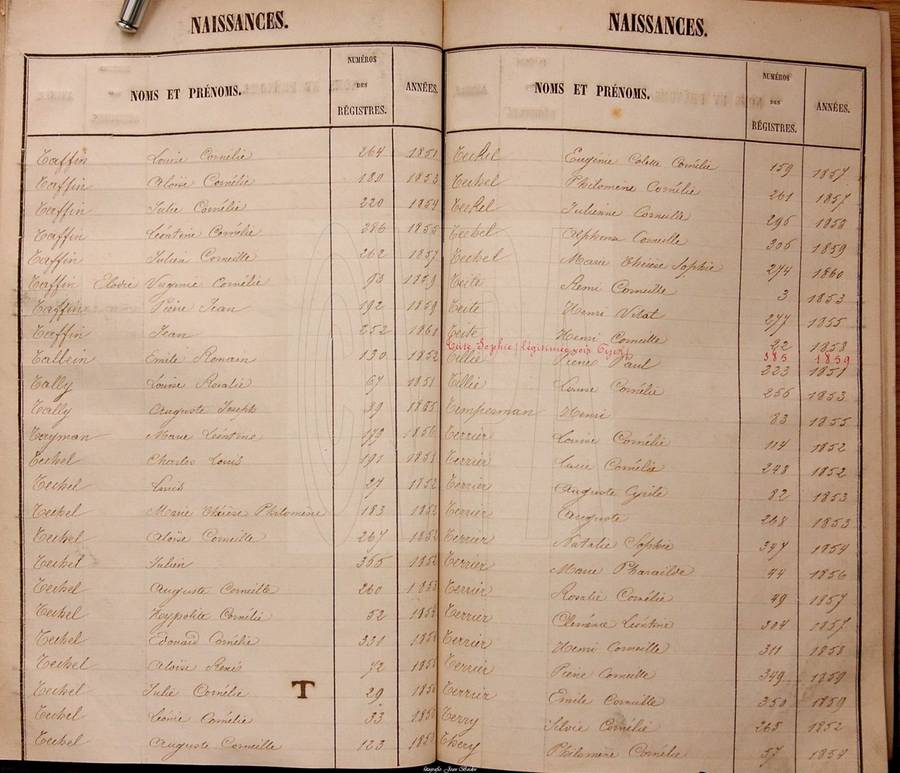 NAISSANCES.
NOMS ET PRÉNOMS. NUMÉROS DES RÉGISTRES. ANNÉES.
Taffin Louise Cornélie 264 1851
Taffin Aloïse Cornélie 180 1853
Taffin Julie Cornélie 220 1854
Taffin Léontine Cornélie 286 1855
Taffin Julien Corneille 262 1857
Taffin Elodie Virginie Cornélie 93 1859
Taffin Pierre Jean 192 1859
Taffin Jean 252 1860
Talbein Emile Romain 130 1852
Tally Louise Rosalie 67 1851
Tally Auguste Joseph 89 1855
Tayman Marie Léontine 173 1856
Teckel Charles Louis 191 1851
Teckel Louis 27 1852
Teckel Marie Thérèse Philomène 183 1852
Teckel Aloïse Corneille 267 1852
Teckel Julien 355 1852
Teckel Auguste Corneille 260 1853
Teckel Hyppolite Cornélie 52
Teckel Edouard Cornélie 331
Teckel Aloïse René 72
Teckel Julie Cornélie 29
Teckel Léonie Cornélie 33
Teckel Auguste Corneille 123
T
NAISSANCES.
NOMS ET PRÉNOMS. NUMÉROS DES RÉGISTRES. ANNÉES.
Teckel Eugénie Colette Cornélie 159 1857
Teckel Philomène Cornélie 261 1857
Teckel Julienne Corneille 295 1858
Teckel Alphonse Corneille 306 1859
Teckel Marie Thérèse Sophie 274 1860
Teite Rémi Corneille 3 1853
Teite Henri Vital 277 1855
Teite Henri Corneille 22 1858
Teite, Sophie (légitimée, voir 385 1859
Tellié Pierre Paul 223 1851
Tellié Louise Cornélie 256 1853
Temperman Henri 83 1855
Terrier Louise Cornélie 114 1852
Terrier Lucie Cornélie 248 1852
Terrier Auguste Cyrille 82 1853
Terrier Auguste 268 1853
Terrier Natalie Sophie 347 1854
Terrier Marie Pharaïlde 44 1856
Terrier Rosalie Cornélie 49 1857
Terrier Clémence Léontine 304 1857
Terrier Henri Corneille 311 1858
Terrier Pierre Corneille 349 1859
Terrier Emile Corneille 350 1859
Terry Silvie Cornélie 265 1852
Thery Philomène Cornélie 57 1854